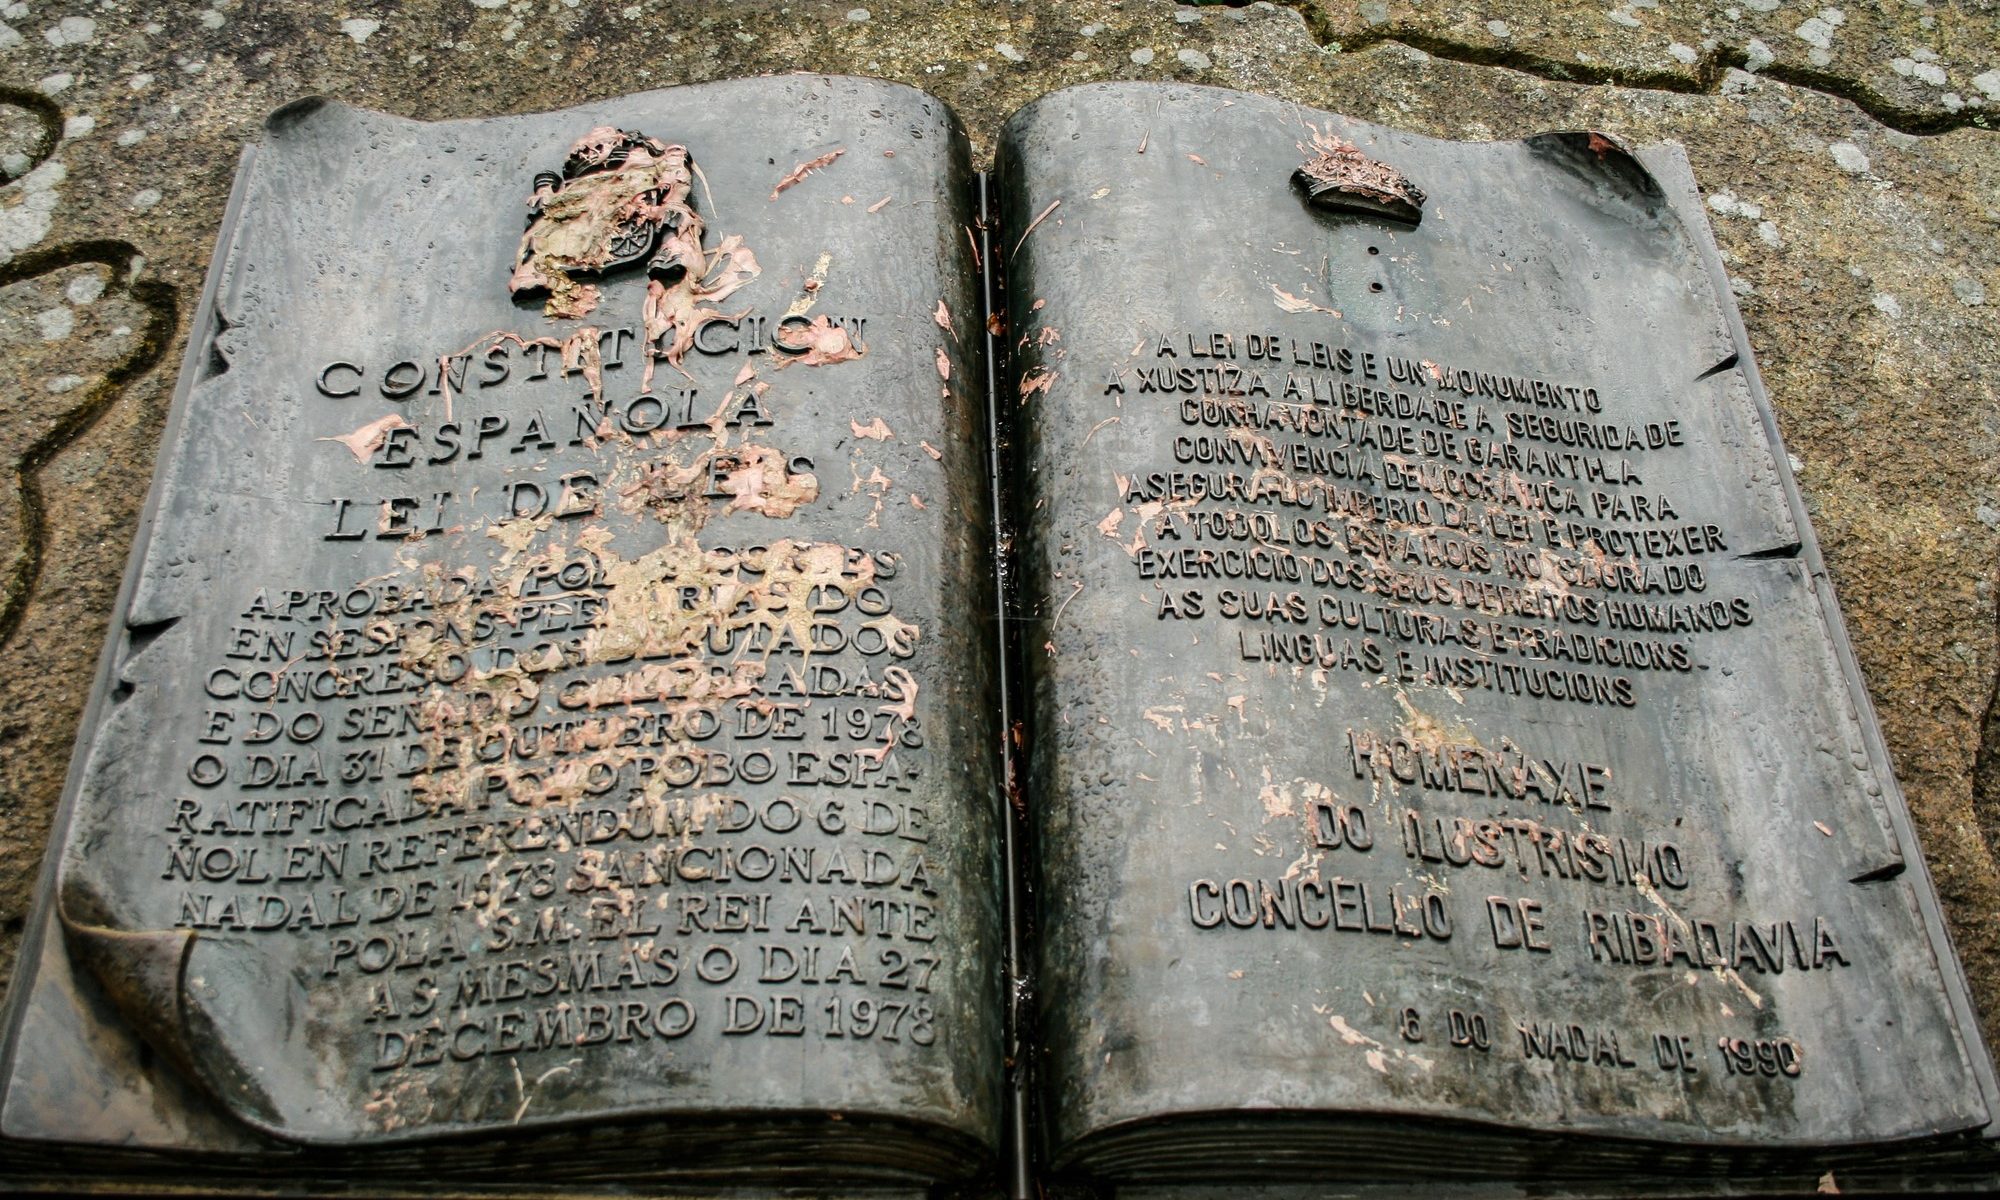 CONSTITUCION
ESPAÑOLA
LEI DE LEIS
APROBADA POLAS CORTES
EN SESIONS PLENARIAS DO
CONGRESO DOS DEPUTADOS
E DO SENADO CELEBRADAS
O DIA 31 DE OUTUBRO DE 1978
RATIFICADA POLO POBO ESPA-
ÑOL EN REFERENDUM DO 6 DE
NADAL DE 1978 SANCIONADA
POLA S.M. EL REI ANTE
AS MESMAS O DIA 27
DECEMBRO DE 1978
A LEI DE LEIS E UN MONUMENTO
A XUSTIZA A LIBERDADE A SEGURIDADE
CUNHA VONTADE DE GARANTI-LA
CONVIVENCIA DEMOCRATICA PARA
ASEGURALO IMPERIO DA LEI E PROTEXER
A TODOLOS ESPAÑOIS NO SAGRADO
EXERCICIO DOS SEUS DEREITOS HUMANOS
AS SUAS CULTURAS E TRADICIONS
LINGUAS E INSTITUCIONS
HOMENAXE
DO ILUSTRISIMO
CONCELLO DE RIBADAVIA
6 DO NADAL DE 1990